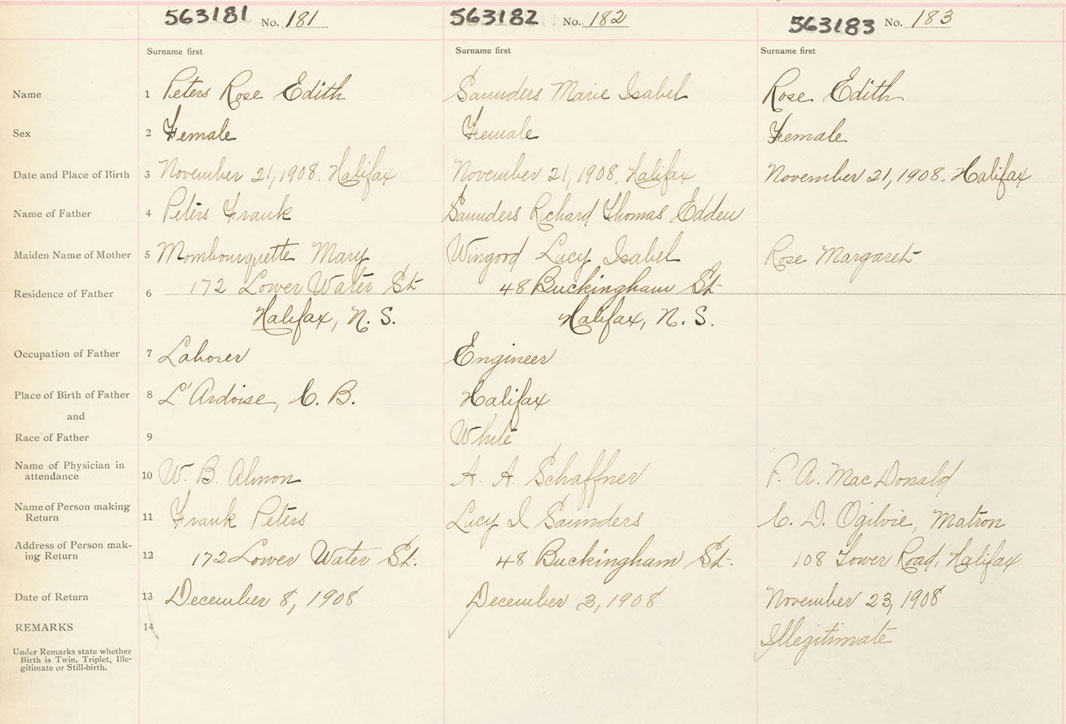 563181 No. 181 563182 No. 182 563183 No. 183
Surname first Surname first Surname first
Name 1 Peters Rose Edith Saunders Marie Isabel Rose Edith
Sex 2 Female Female Female
Date and Place of Birth 3 November 21, 1908. Halifax November 21, 1908. Halifax November 21, 1908. Halifax
Name of Father 4 Peters Frank Saunders Richard Thomas Edden
Maiden Name of Mother 5 Mombourquette Mary Wingood Lucy Isabel Rose Margaret
Residence of Father 6 172 Lower Water St. 48 Buckingham St.
Halifax, N. S. Halifax, N. S.
Occupation of Father 7 Laborer Engineer
Place of Birth of Father 8 L'Ardoise, C. B. Halifax
and
Race of Father 9 White
Name of Physician in
attendance 10 W. B. Almon A. A. Schaffner F. A. MacDonald
Name of Person making
Return 11 Frank Peters Lucy I Saunders C. D. Ogilvie, Matron
Address of Person mak-
ing Return 12 172 Lower Water St. 48 Buckingham St. 108 Tower Road, Halifax
Date of Return 13 December 8, 1908 December 3, 1908 November 23, 1908
REMARKS 14 Illegitimate
Under Remarks state whether
Birth is Twin, Triplet, Ille-
gitimate or Still-birth.